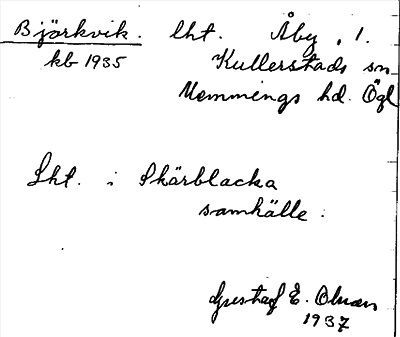 Björkvik. lht. Åby, 1.
kb 1935 Kullerstads sn
Memmings hd. Ögl
Lht. i Skärblacka
samhälle.
Gustaf E. Olnan
1937